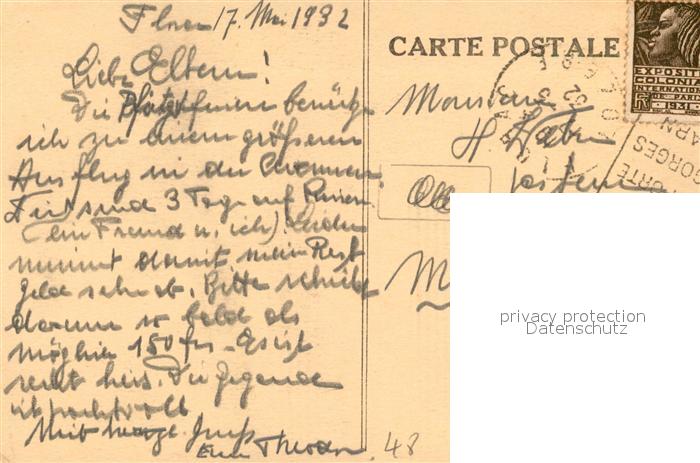 17. Mai 1932
Liebe Eltern!
Die Pfingstferien benütze
ich zu einem größeren
Ausflug in die Cevennen.
Wir sind 3 Tage auf Reisen.
(ein Freund u. ich) Leider
nimmt damit mein Rest
Geld sehr ab. Bitte schickt
darum so bald als
möglich 150 frs. Es ist
recht heis. Die Gegend
ist prachtvoll
Mit Gruß
Euer Theodor
48
CARTE POSTALE
Monsieur
H
EXPOSITION
COLONIALE
INTERNATIONALE
DE PARIS
1931
GORGES
privacy protection
Datenschutz